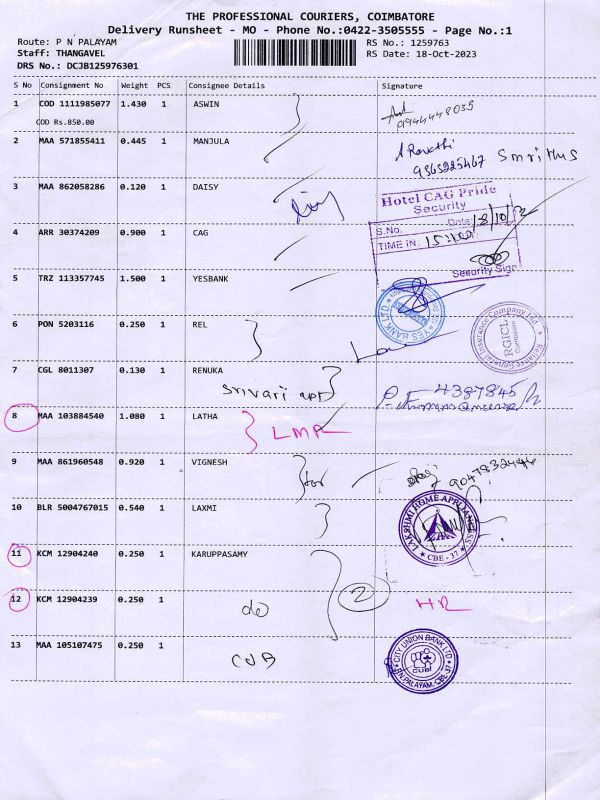 THE PROFESSIONAL COURIERS, COIMBATORE
Delivery Runsheet - MO - Phone No.:0422-3505555 - Page No.:1
Route: P N PALAYAM
Staff: THANGAVEL
DRS No.: DCJB125976301
RS No.: 1259763
RS Date: 18-Oct-2023
S No Consignment No Weight PCS Consignee Details Signature
1 COD 1111985077 1.430 1 ASWIN
COD Rs.850.00
9944448055
2 MAA 571855411 0.445 1 MANJULA
A Revathi
9363225467 Smrithus
3 MAA 862058286 0.120 1 DAISY
Hotel CAG Pride
Security
S.No. Date: 18/10/2
TIME IN: 15:00
Security Sign
4 ARR 30374209 0.900 1 CAG
5 TRZ 113357745 1.500 1 YESBANK
YES BANK LTD.
6 PON 5203116 0.250 1 REL
Reliance General Insurance Company Ltd.
RGICL
Coimbatore
7 CGL 8011307 0.130 1 RENUKA
srivari apt
4387845
8 MAA 103884540 1.080 1 LATHA
LMR
9 MAA 861960548 0.920 1 VIGNESH
9047832446
10 BLR 5004767015 0.540 1 LAXMI
LAKSHMI HOME APPLIANCES
CBE - 37
11 KCM 12904240 0.250 1 KARUPPASAMY
2
12 KCM 12904239 0.250 1
do
HR
13 MAA 105107475 0.250 1
CUB
CITY UNION BANK LTD.
CUB
P.N.PALAYAM, CBE-37